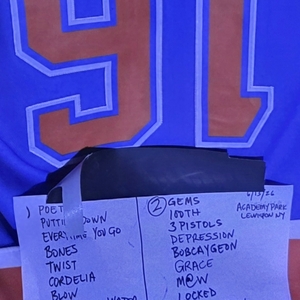 91
1) POET
PUTTIN DOWN
EVERYTIME YOU GO
BONES
TWIST
CORDELIA
BLOW
WATER
2 GEMS
100TH
3 PISTOLS
DEPRESSION
BOBCAYGEON
GRACE
M@W
LOCKED
6/13/26
ACADEMY PARK
LEWISTON NY